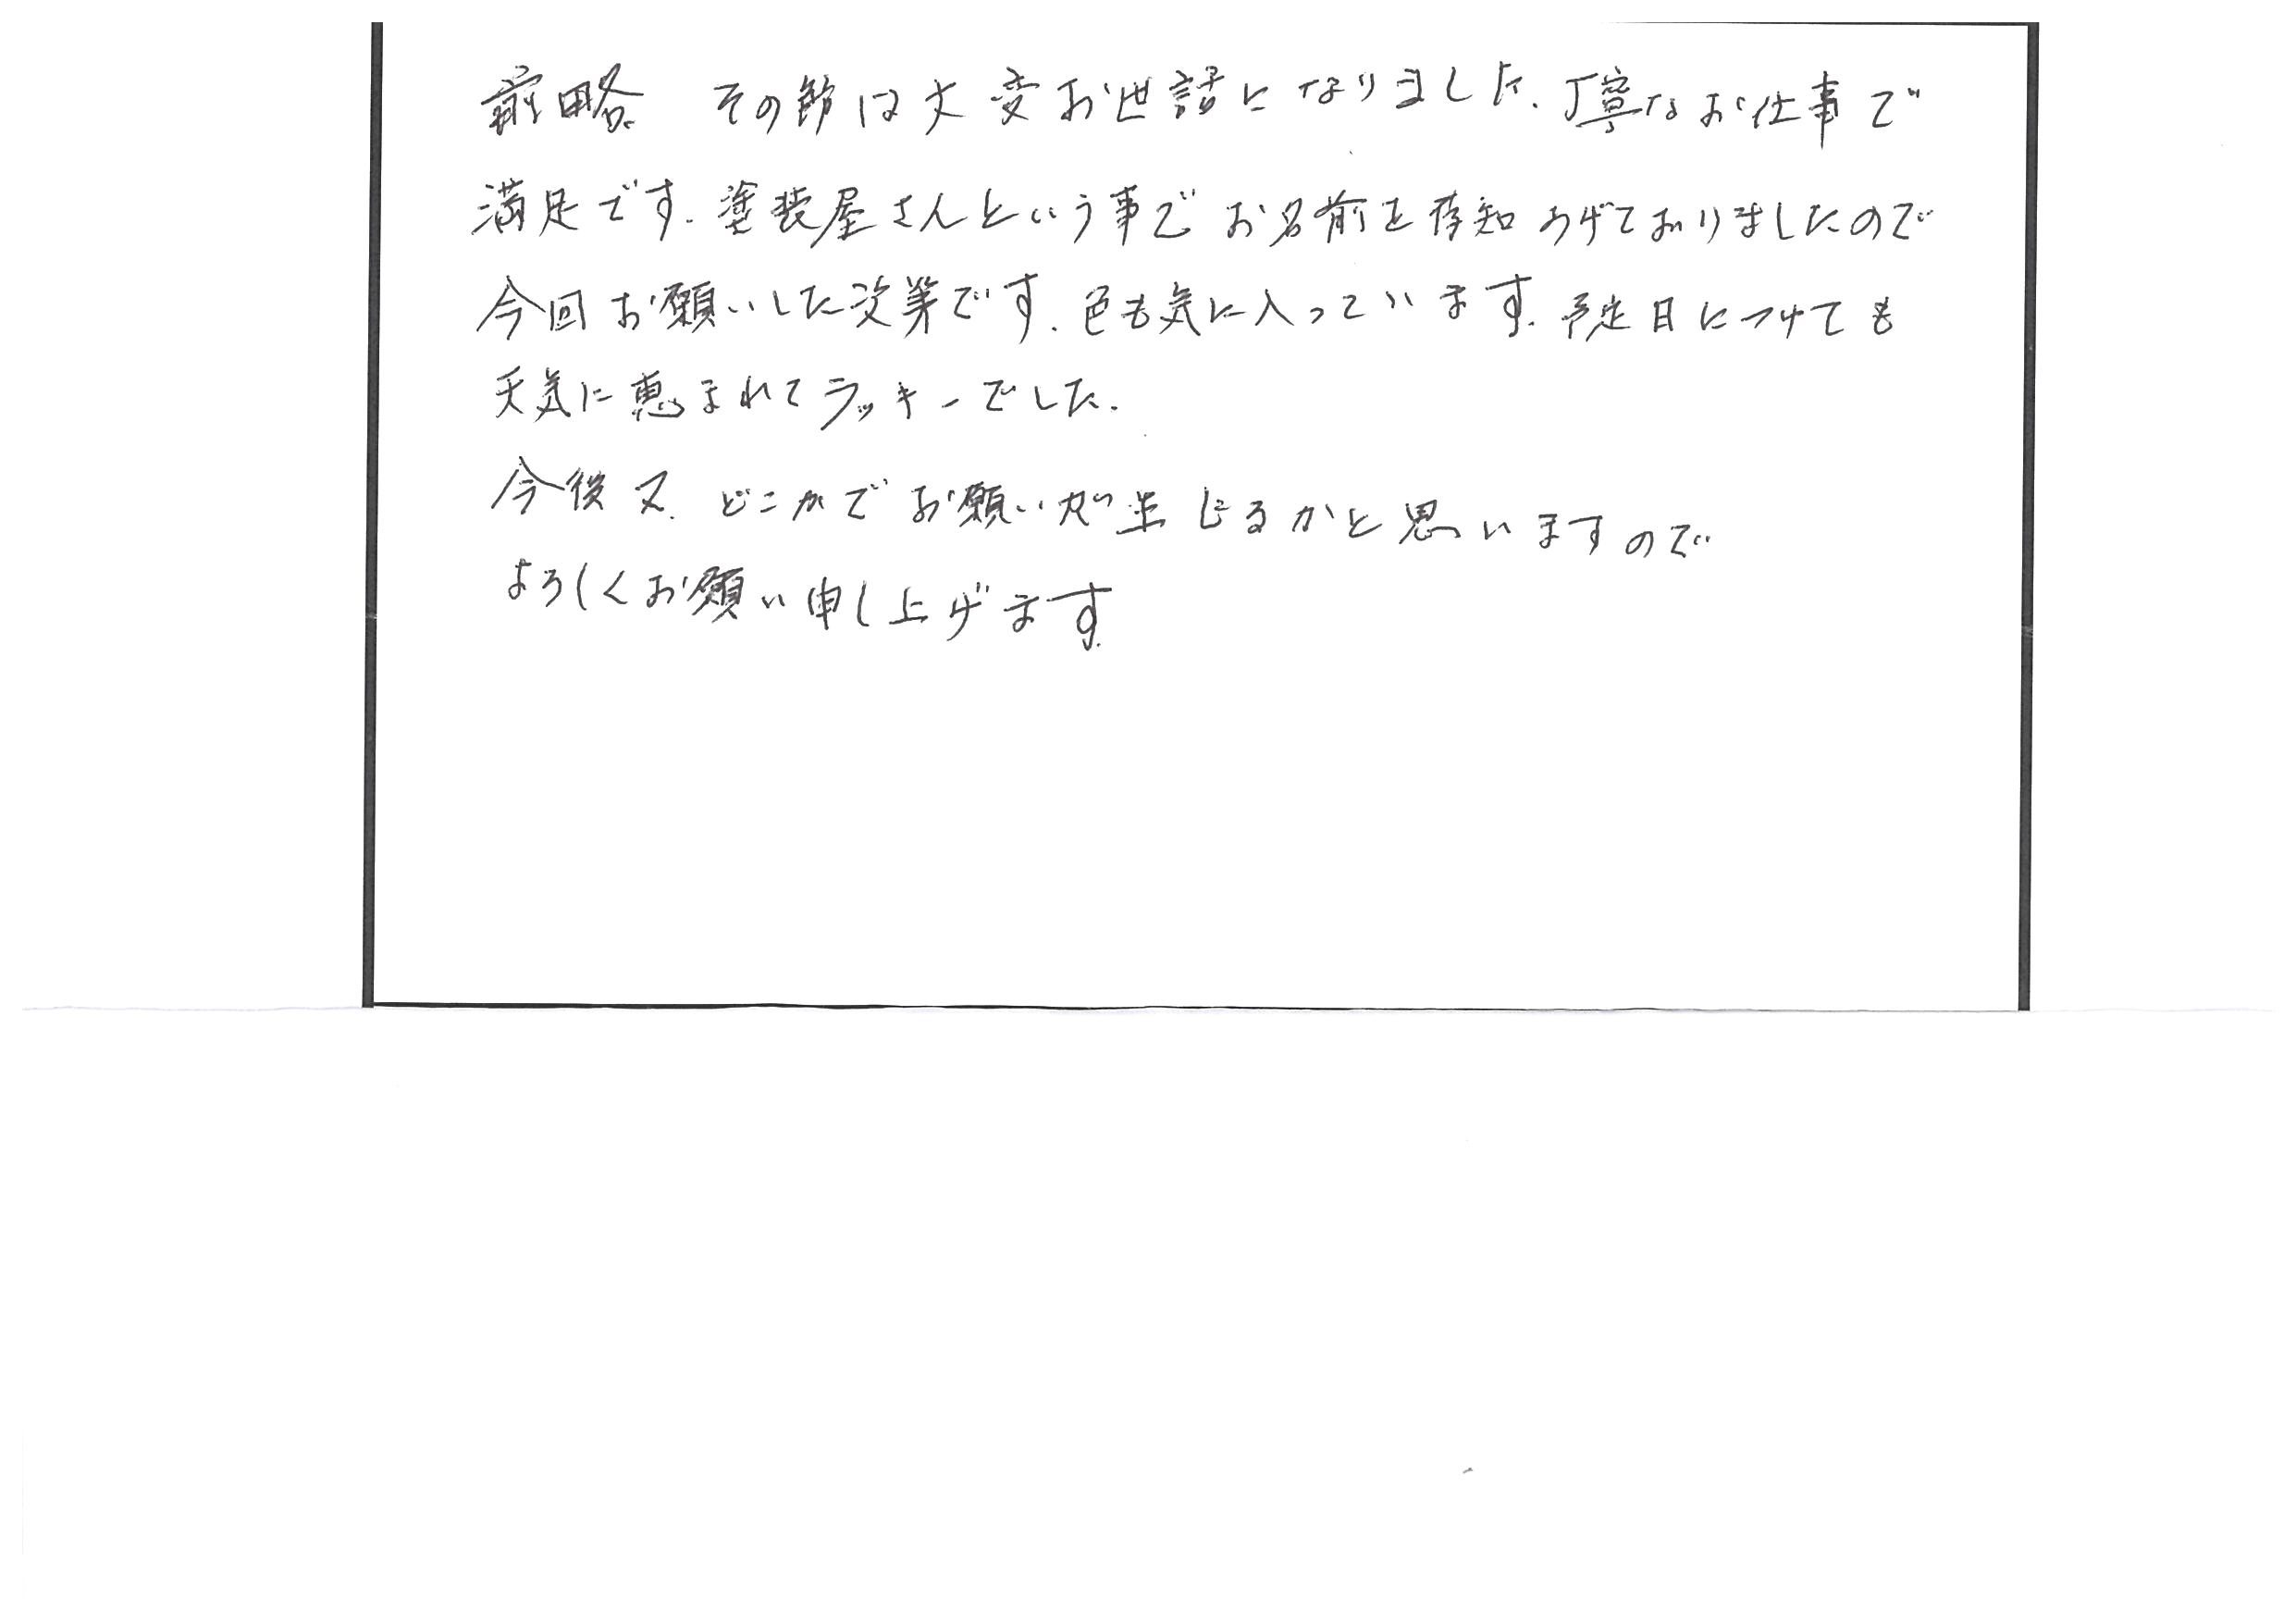 前略 その節は大変お世話になりました。丁寧なお仕事で
満足です。塗装屋さんという事でお名前を存知あげておりましたので
今回お願いした次第です。色も気に入っています。予定日につけても
天気に恵まれてラッキーでした。
今後又、どこかでお願いが生じるかと思いますので
よろしくお願い申し上げます。